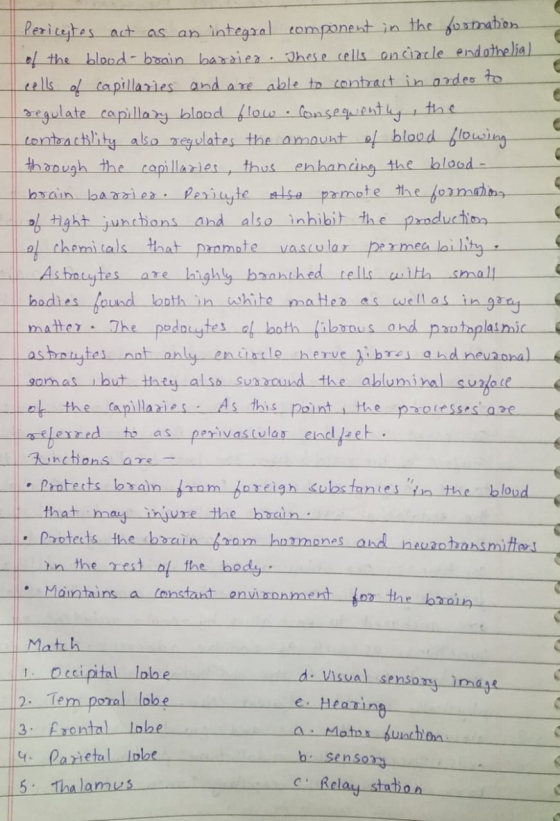 Pericytes act as an integral component in the formation
of the blood-brain barrier. These cells encircle endothelial
cells of capillaries and are able to contract in order to
regulate capillary blood flow. Consequently, the
contractility also regulates the amount of blood flowing
through the capillaries, thus enhancing the blood-
brain barrier. Pericyte also promote the formation
of tight junctions and also inhibit the production
of chemicals that promote vascular permeability.
Astrocytes are highly branched cells with small
bodies found both in white matter as well as in gray
matter. The podocytes of both fibrous and protoplasmic
astrocytes not only encircle nerve fibres and neuronal
somas, but they also surround the abluminal surface
of the capillaries. As this point, the processes are
referred to as perivascular endfeet.
Functions are –
• Protects brain from foreign substances" in the blood
that may injure the brain.
• Protects the brain from hormones and neurotransmitters
in the rest of the body.
• Maintains a constant environment for the brain
Match
1. Occipital lobe d. Visual sensory image
2. Temporal lobe e. Hearing
3. Frontal lobe a. Motor function.
4. Parietal lobe b. sensory
5. Thalamus c. Relay station